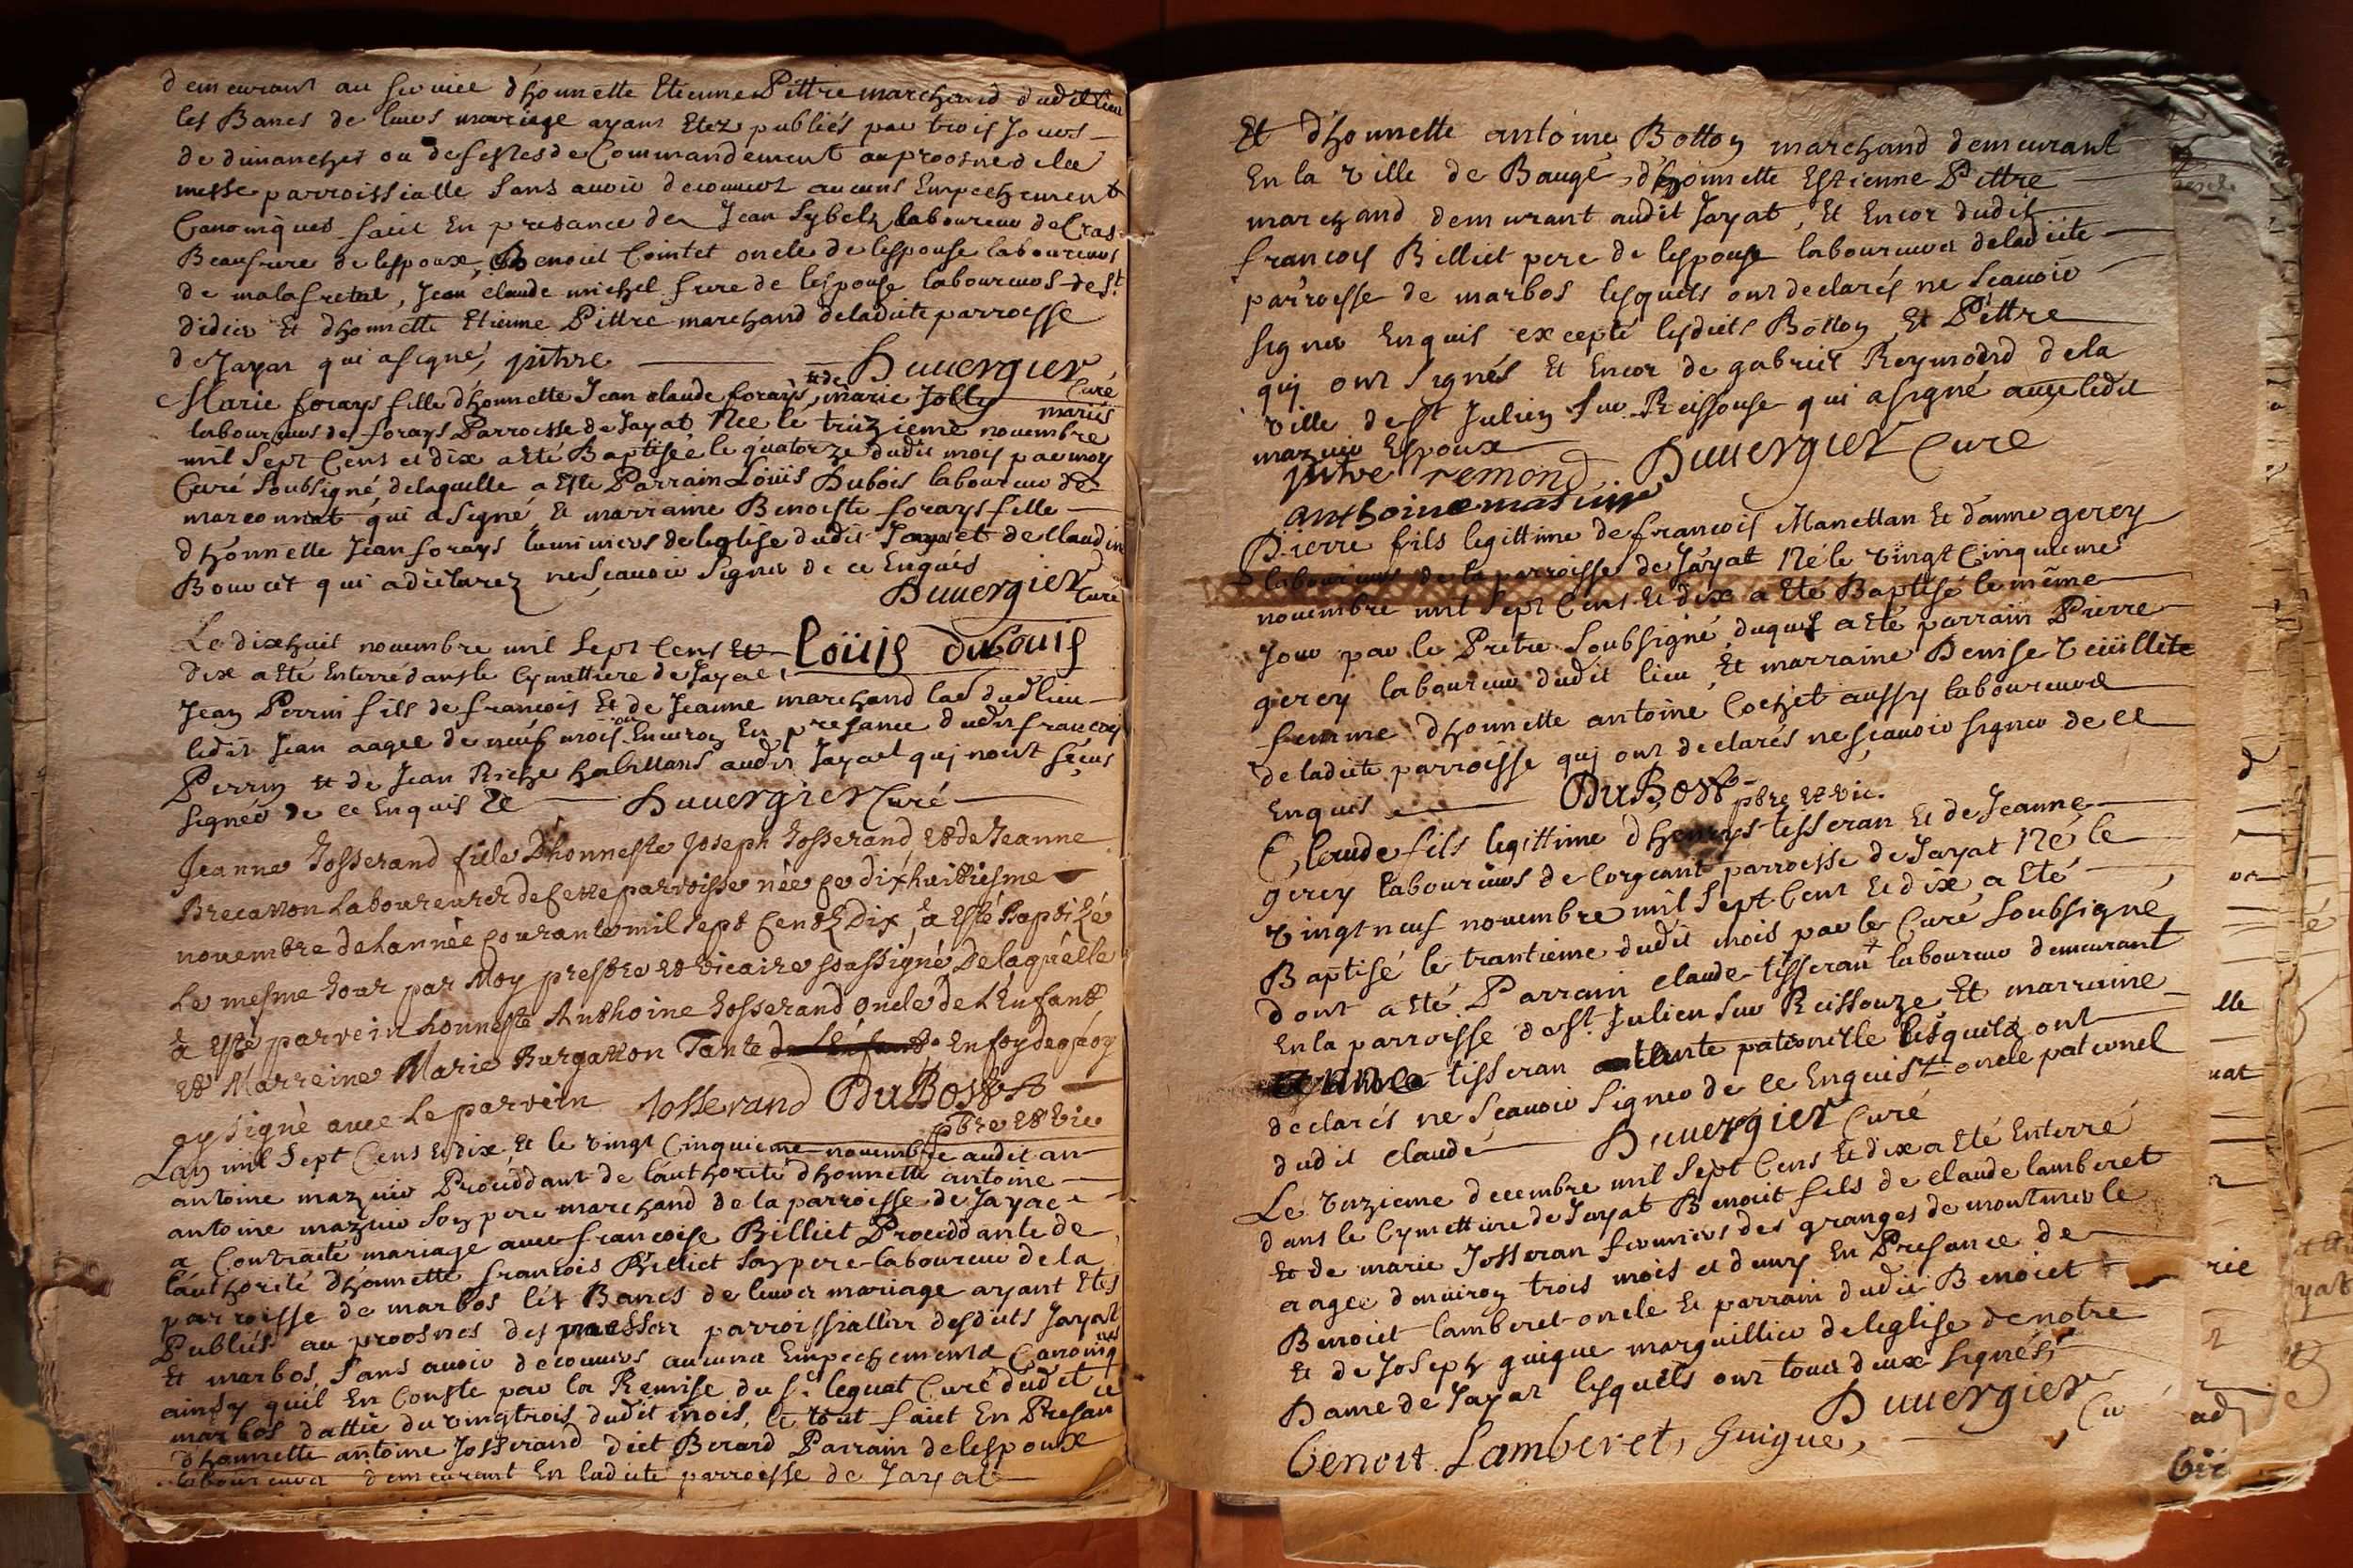 demeurant au service d'honnette Etienne Pittre marchand dudit lieu
les Bancs de leurs mariage ayans Etez publiés par trois Jours
de dimanches ou de festes de Commandement au proosne de la
messe parroissialle sans avoir decouvert aucuns Empechement
Canoniques fait En presance de Jean Sybelz laboureur de Cras
Beaufrere de lespoux, Benoiet Cointet oncle de lespouse laboureurs
de malafretat, Jean claude michel frere de lespouse laboureurs de St
didier Et dhonnette Etienne Pittre marchand deladitte parroesse
de Jayat qui a signé, pittre Duuergier
Curé
Marie forays fille dhonnette Jean claude forays, et de marie Jolly mariés
laboureurs des forays Parroisse de Jayat Née le treizieme novembre
mil Sept Cens et dix a Eté Baptisée le quatorze dudit mois par moy
Curé Soubsigné, delaquelle a Esté Parrain Loüis Dubois laboureur de
marconnat qui a signé, Et marraine Benoiste forays fille
dhonnette Jean forays luminiers de leglise dudit Jayat et de Claudine
Bouvet qui a déclarez ne Sçauoir Signer de ce Enquis
Duuergier Curé
Le dixhuit novembre mil Sept Cens Et loüis duBouis
dix a Eté Enterré dans le Cymettiere de Jayat,
Jean Perrin fils de francois Et de Jeanne marchand lad dudlieu
ledit Jean aagee de neuf mois ou Enuiron En presance dudit francois
Perrin et de Jean Riche habittans audit Jayat qui nont sçeus
signér de ce Enquis Duuergier Curé
Jeanne Josserand fille Dhonneste Joseph Josserand, et de Jeanne
Brecatton Laboureurer de Cette parroisse née ce dixhuittiesme
novembre de Lannée Courante mil sept Centz Dix, a Esté Baptizée
Le mesme Jour par Moy prestre et vicaire soussigné De laquelle
a esté parrein honneste Anthoine Josserand oncle de LEnfant
et Marreine Marie Burgatton Tante de LEnfant. En foy de quoy
ay signé avec Le parrein Josserand DuBost
pbre et vic
Lan mil Sept Cens et dix, Et le vingt Cinquieme novembre audit an
antoine mazuir Proceddant de lauthorité dhonnette antoine
antoine mazuir son pere marchand de la parroesse de Jayat
a Contracté mariage avec francoise Billiet Proceddante de
lauthorité dhonnette francois Billiet son pere laboureur de la
parroisse de marbos les Bancs de leurs mariage ayant Etes
Publiés au proosnes des messes parroissialles desdits Jayat
Et marbos, sans avoir decouvers aucuns Empechements Canoniques
ainsy quil En Conste par la Remise du Sr lequat Curé dudit
marbos dattée du vingtrois dudit mois, le tout fait En Presance
dhonnette antoine Josserand diet Berard Parrain de lespoux
laboureurs demeurant En ladite parroisse de Jayat
Et d'honnette antoine Botton marchand demeurant
En la ville de Baugé, dhonnette Estienne Pittre
marchand demeurant audit Jayat, Et Encor dudit
francois Billiet pere de lespouse laboureurs deladitte
parroesse de marbos lesquels ont declarés ne Scauoir
signer Enquis excepté lesdits Botton, Et Pittre
qui ont Signés Et Encor de gabriel Reymond de la
ville de St Julien Sur Reissouse qui a signé avec ledit
mazuir Espoux
pittre remond Duuergier Curé
anthoine masuir
Pierre fils legittime de francois Manettan Et danne gerey
laboureurs de la parroisse de Jayat Né le vingt Cinquieme
novembre mil Sept Cens Et dix a Eté Baptisé le même
Jour par le Pretre Soubsigné, duquel a Eté parrain Pierre
gerey laboureur dudit lieu, Et marraine Denise Veüillete
femme dhonnette antoine Cochet aussy laboureurs
deladitte parroisse qui ont declarés ne sçauoir signer de ce
Enquis DuBost pbre et vic.
Claude fils legittime dhenrys tisseran Et de Jeanne
gerey laboureurs de Corgeant parroesse de Jayat Né le
vingt neuf novembre mil Sept Cent Et dix, a Eté
Baptisé le trantieme dudit mois par le Curé Soubsigné
dont a Eté Parrain claude tisseran + laboureur demeurant
En la parroesse de St Julien Sur Reissouze, Et marraine
tisseran tante paternelle lesquels ont
declarés ne Sçauoir Signer de ce Enquis + oncle paternel
dudit claude Duuergier Curé
Le unzieme decembre mil Sept Cens Et dix a Eté Enterré
dans le Cymettiere de Jayat Benoiet fils de claude lamberet
Et de marie Josseran fermiers des granges de montmerle
aagee denviron trois mois et demy En Presance de
Benoiet lamberet oncle Et parrain dudit Benoiet
Et de Joseph guigue marguillier de leglise de notre
Dame de Jayat lesquels ont tous deux Signés,
Duuergier
Benoit Lamberet, Guigue,